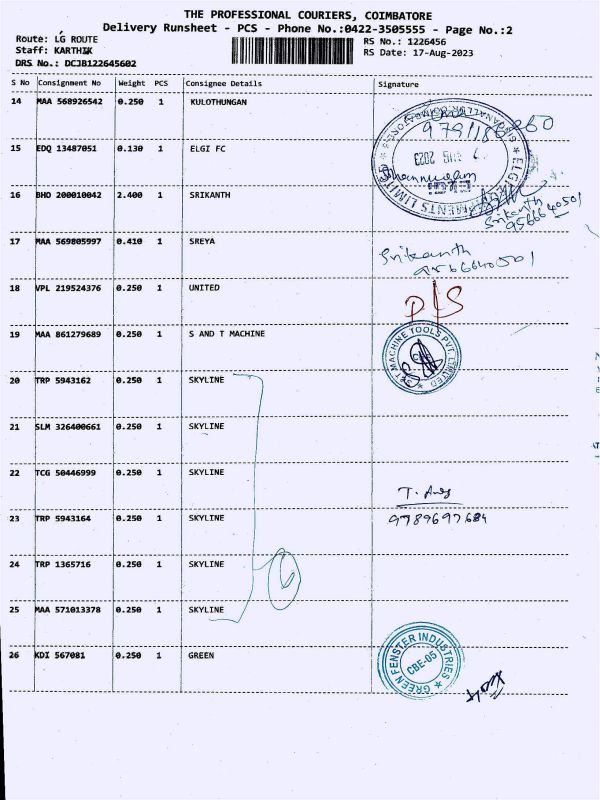 THE PROFESSIONAL COURIERS, COIMBATORE
Delivery Runsheet - PCS - Phone No.:0422-3505555 - Page No.:2
Route: LG ROUTE
Staff: KARTHIK
DRS No.: DCJB122645602
RS No.: 1226456
RS Date: 17-Aug-2023
S No Consignment No Weight PCS Consignee Details Signature
14 MAA 568926542 0.250 1 KULOTHUNGAN
15 EDQ 13487051 0.130 1 ELGI FC
16 BHO 200010042 2.400 1 SRIKANTH
Srikanth
9566640501
17 MAA 569805997 0.410 1 SREYA
Srikanth
9566640501
18 VPL 219524376 0.250 1 UNITED
19 MAA 861279689 0.250 1 S AND T MACHINE
S&T MACHINE TOOLS PVT. LIMITED
20 TRP 5943162 0.250 1 SKYLINE
21 SLM 326400661 0.250 1 SKYLINE
22 TCG 50446999 0.250 1 SKYLINE
23 TRP 5943164 0.250 1 SKYLINE
9789697684
24 TRP 1365716 0.250 1 SKYLINE
25 MAA 571013378 0.250 1 SKYLINE
6
26 KDI 567081 0.250 1 GREEN
GREEN FENSTER INDUSTRIES
CBE-05